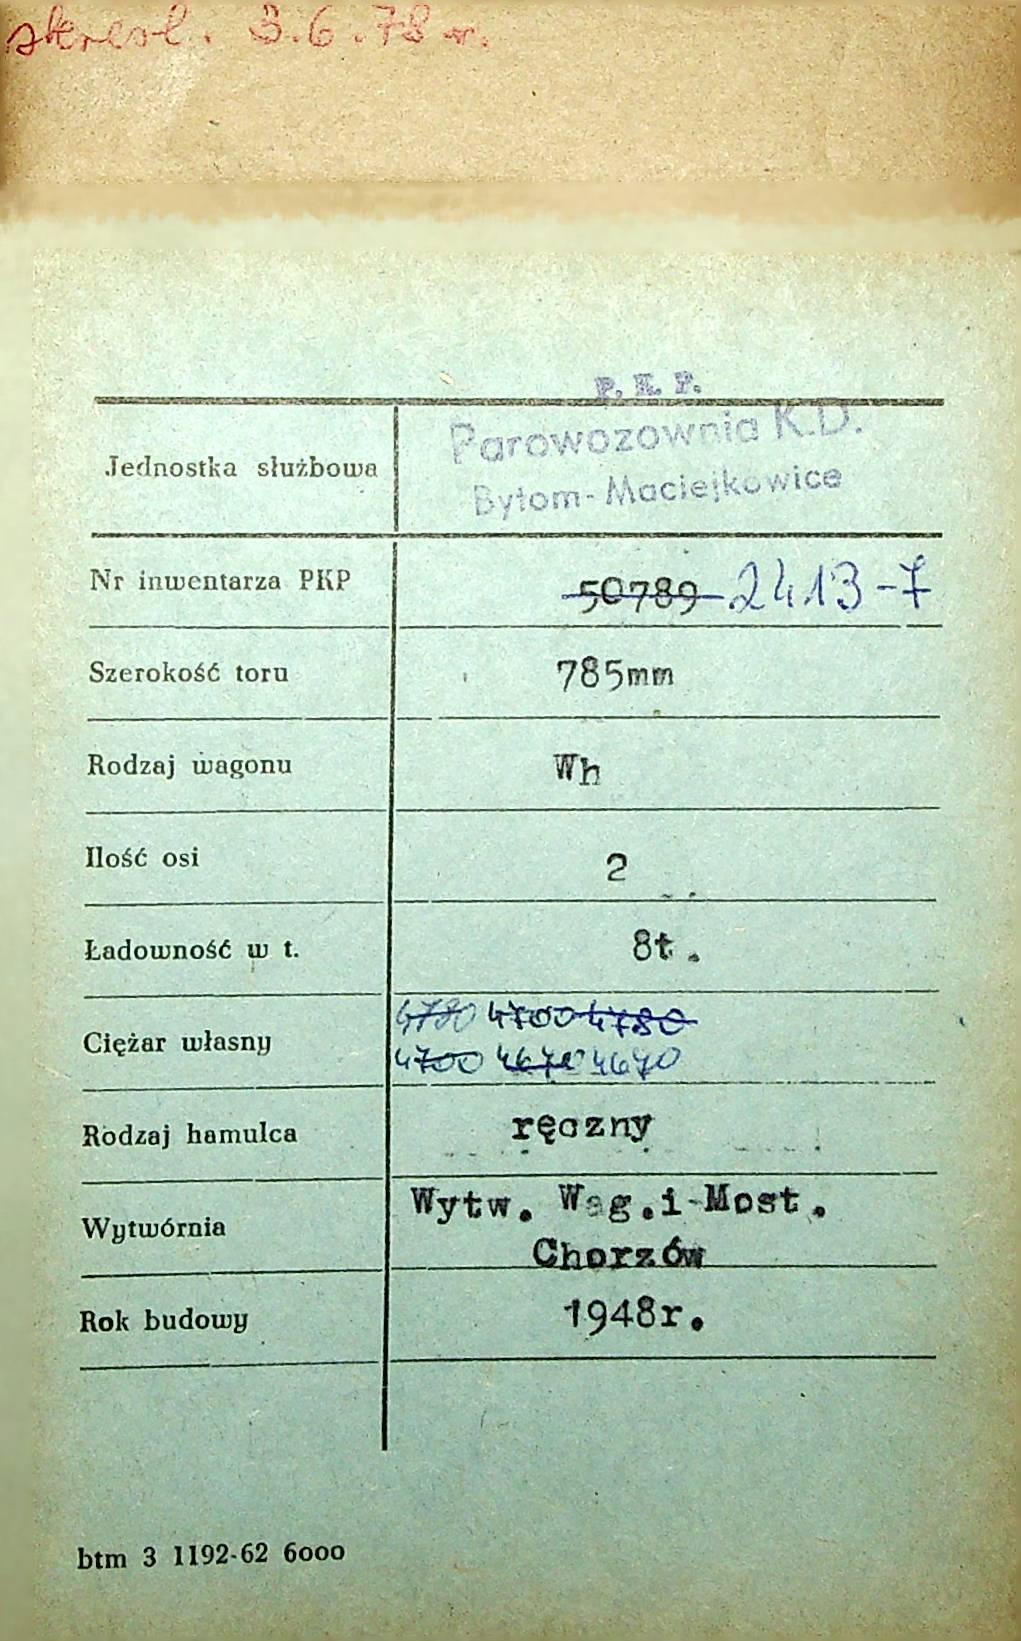 skreśl. 3.6.78 r.
P. K. P.
Parowozownia K.D.
Bytom-Maciejkowice
Jednostka służbowa
Nr inwentarza PKP 50789 2413-7
Szerokość toru 785mm
Rodzaj wagonu Wh
Ilość osi 2
Ładowność w t. 8t.
4780 4700 4780
Ciężar własny
4700 4670 4670
Rodzaj hamulca ręczny
Wytw. Wag.i Most.
Wytwórnia
Chorzów
Rok budowy 1948r.
btm 3 1192-62 6000